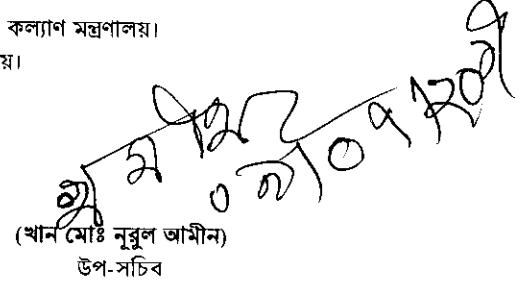 কল্যাণ মন্ত্রণালয়।
য়।
(খান মোঃ নূরুল আমীন)
উপ-সচিব